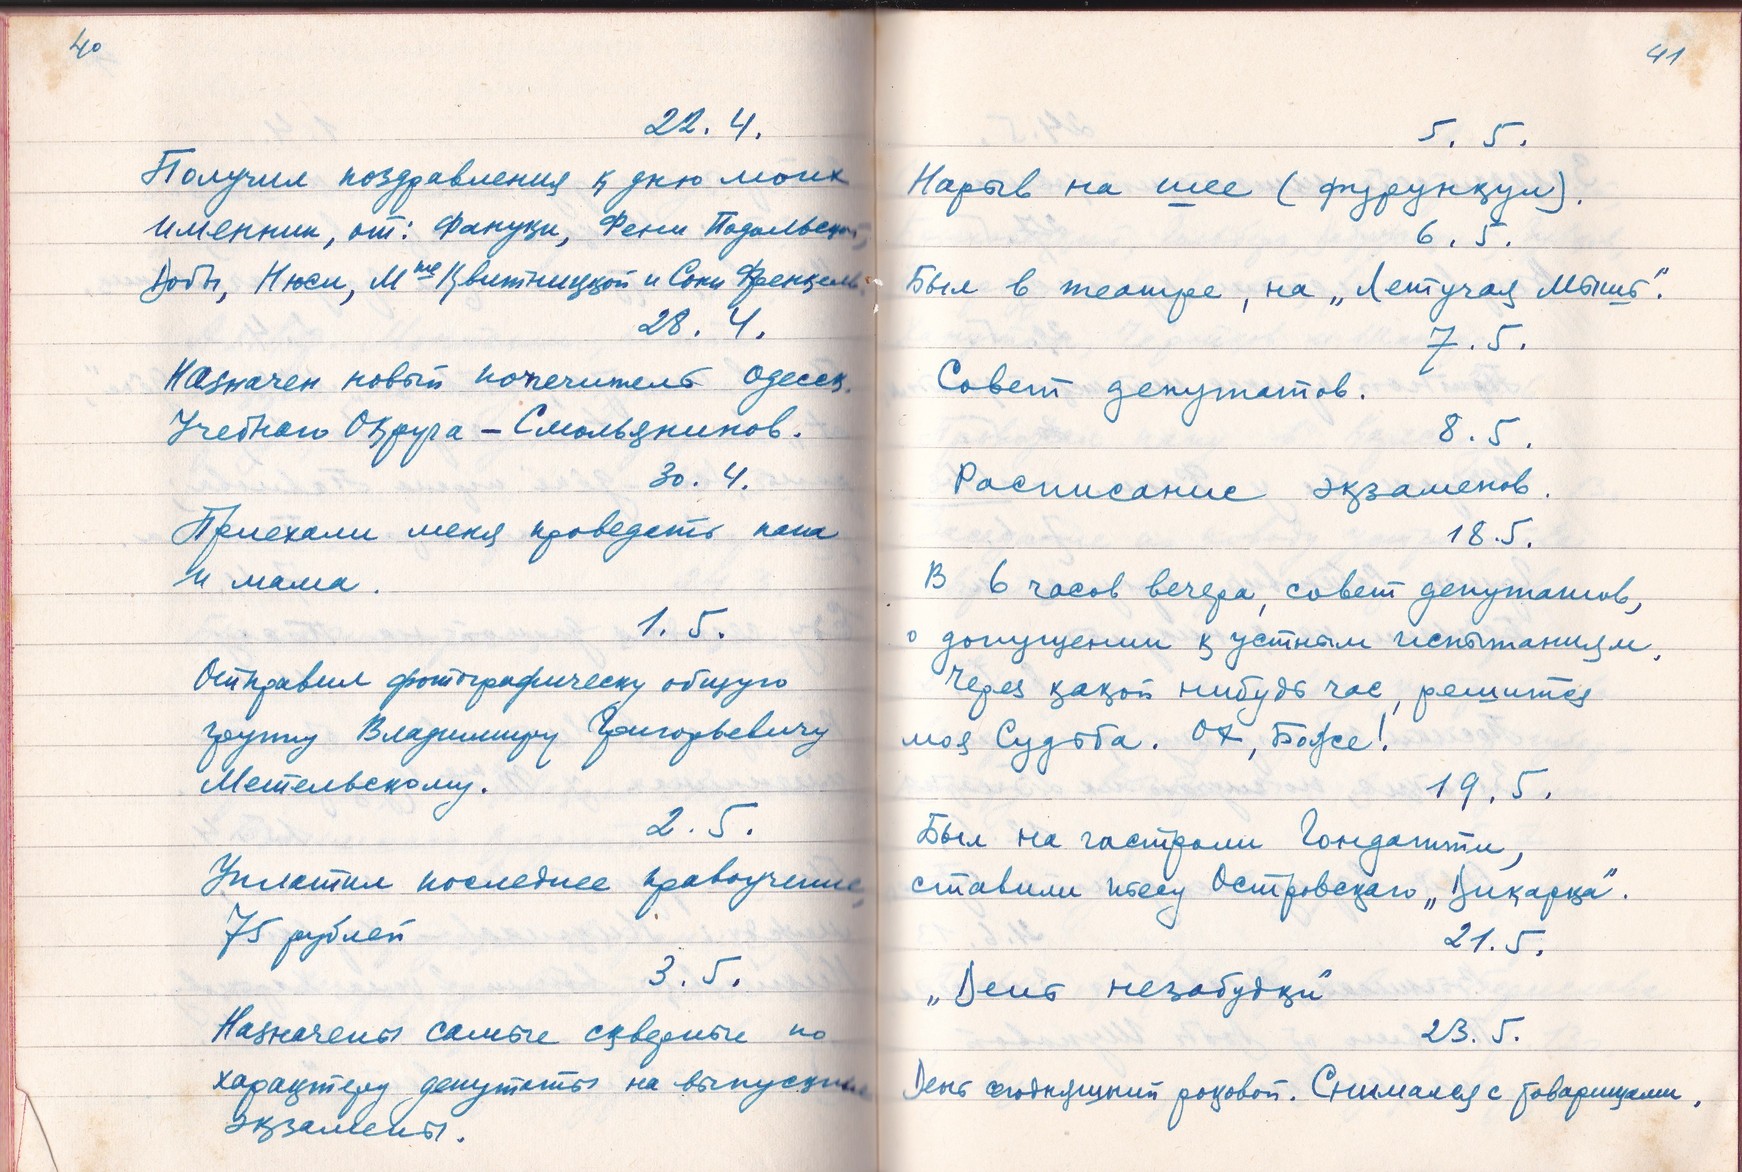 40
22. 4.
Получил поздравления к дню моих
именин, от: Фануки, Фени Подольской,
Добы, Нюси, Мme Квитницкой и Сони Френкель.
28. 4.
Назначен новый попечитель Одесск.
Учебного Округа – Смольянинов.
30. 4.
Приехали меня проведать папа
и мама.
1. 5.
Отправил фотографическу общую
группу Владимиру Григорьевичу
Метельскому.
2. 5.
Уплатил последнее правоучение,
75 рублей
3. 5.
Назначены самые скверные по
характеру депутаты на выпускные
экзамены.
41
5. 5.
Нарыв на шее (фурункул).
6. 5.
Был в театре, на „Летучая Мышь".
7. 5.
Совет депутатов.
8. 5.
Расписание экзаменов.
18. 5.
В 6 часов вечера, совет депутатов,
о допущении к устным испытаниям.
Через какой нибудь час, решится
моя Судьба. Ох, Боже!
19. 5.
Был на гастроли Гондатти,
ставили пьесу Островскаго „Дикарка".
21. 5.
„День незабудки"
23. 5.
День сегодняшний роковой. Снимался с товарищами.